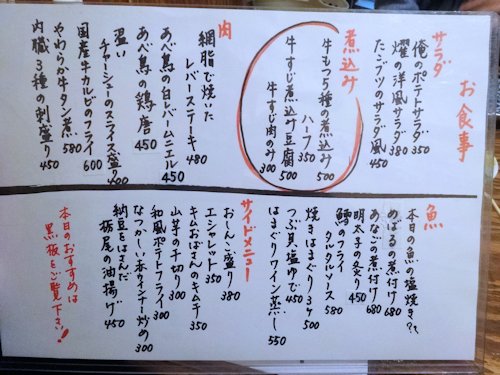 お食事
サラダ
俺のポテトサラダ 350
燿の洋風サラダ 380
たこブツのサラダ風 450
煮込み
牛もつ5種の煮込み 500
ハーフ 350
牛すじ煮込み豆腐 500
牛すじ肉のみ 300
肉
網脂で焼いた
レバーステーキ 480
あべ鳥の白レバームニエル 450
あべ鳥の鶏唐 450
温い
チャーシューのスライス盛り 400
国産牛カルビのフライ 600
やわらか牛タン煮 580
内臓3種の刺盛り 450
魚
本日の魚の塩焼き??
めばるの煮付け 680
あなごの煮付け 680
明太子の炙り 450
鱈のフライ
タルタルソース 580
焼きはまぐり3ケ 500
つぶ貝塩ゆで 450
はまぐりワイン蒸し 550
サイドメニュー
おしんこ盛り 380
エシャレット 350
キムおばさんのキムチ 350
山芋の千切り 300
和風ポテトフライ 300
なつかしい赤ウインナー炒め 300
納豆をはさんだ
栃尾の油揚げ 450
本日のおすすめは
黒板をご覧下さい!